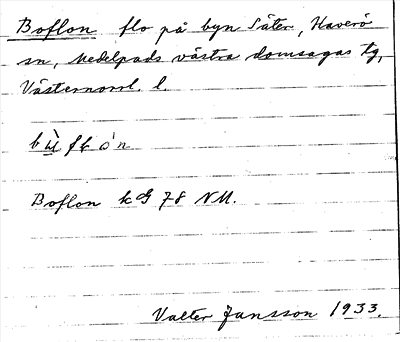 Boflon flo på byn Säter, Haverö
sn, Medelpads västra domsagas tg,
Västernorrl. l.
Boflon kG 78 NM.
Valter Jansson 1933.